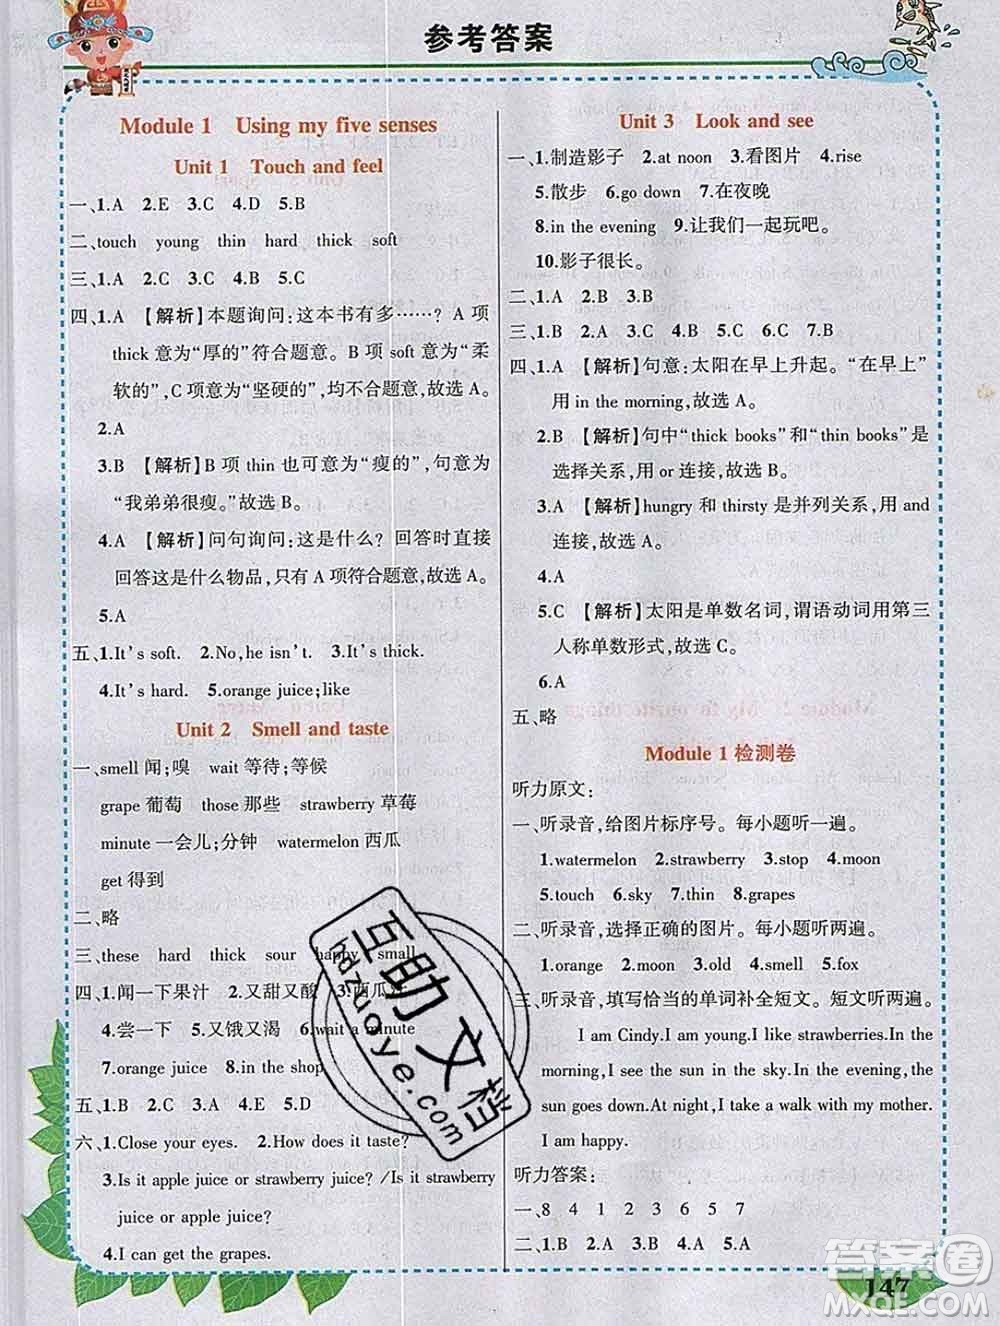 参考答案
Module 1 Using my five senses
Unit 1 Touch and feel
一、1.A 2.E 3.C 4.D 5.B
二、touch young thin hard thick soft
三、1.A 2.B 3.C 4.B 5.C
四、1.A 【解析】本题询问:这本书有多……? A 项
thick 意为“厚的”符合题意。B 项 soft 意为“柔
软的”,C 项意为“坚硬的”,均不合题意,故选 A。
2.A
3.B 【解析】B 项 thin 也可意为“瘦的”,句意为
“我弟弟很瘦。”故选 B。
4.A 【解析】问句询问:这是什么? 回答时直接
回答这是什么物品,只有 A 项符合题意,故选 A。
5.A
五、1.It's soft. 2.No,he isn't. 3.It's thick.
4.It's hard. 5.orange juice;like
Unit 2 Smell and taste
一、smell 闻;嗅 wait 等待;等候
grape 葡萄 those 那些 strawberry 草莓
minute 一会儿;分钟 watermelon 西瓜
get 得到
二、略
三、these hard thick sour happy small
四、1.闻一下果汁 2.又甜又酸 3.西瓜
4.尝一下 5.又饿又渴 6.wait a minute
7.orange juice 8.in the shop
五、1.B 2.C 3.A 4.E 5.D
六、1.Close your eyes. 2.How does it taste?
3.Is it apple juice or strawberry juice? /Is it strawberry
juice or apple juice?
4.I can get the grapes.
Unit 3 Look and see
一、1.制造影子 2.at noon 3.看图片 4.rise
5.散步 6.go down 7.在夜晚
8.in the evening 9.让我们一起玩吧。
10.影子很长。
二、1.A 2.B 3.B
三、1.B 2.A 3.C 4.B 5.C 6.C 7.B
四、1.A 【解析】句意:太阳在早上升起。“在早上”
用 in the morning,故选 A。
2.B 【解析】句中“thick books”和“thin books”是
选择关系,用 or 连接,故选 B。
3.A 【解析】hungry 和 thirsty 是并列关系,用 and
连接,故选 A。
4.A
5.C 【解析】太阳是单数名词,谓语动词用第三
人称单数形式,故选 C。
6.A
五、略
Module 1 检测卷
听力原文:
一、听录音,给图片标序号。每小题听一遍。
1.watermelon 2.strawberry 3.stop 4.moon
5.touch 6.sky 7.thin 8.grapes
二、听录音,选择正确的图片。每小题听两遍。
1.orange 2.moon 3.old 4.smell 5.fox
三、听录音,填写恰当的单词补全短文。短文听两遍。
I am Cindy.I am young.I like strawberries.In the
morning,I see the sun in the sky.In the evening,the
sun goes down.At night,I take a walk with my mother.
I am happy.
听力答案:
一、8 4 1 2 3 5 7 6
二、1.B 2.A 3.B 4.A 5.A
147
互助文档
hdzuoye.com
答案圈
MXQE.COM